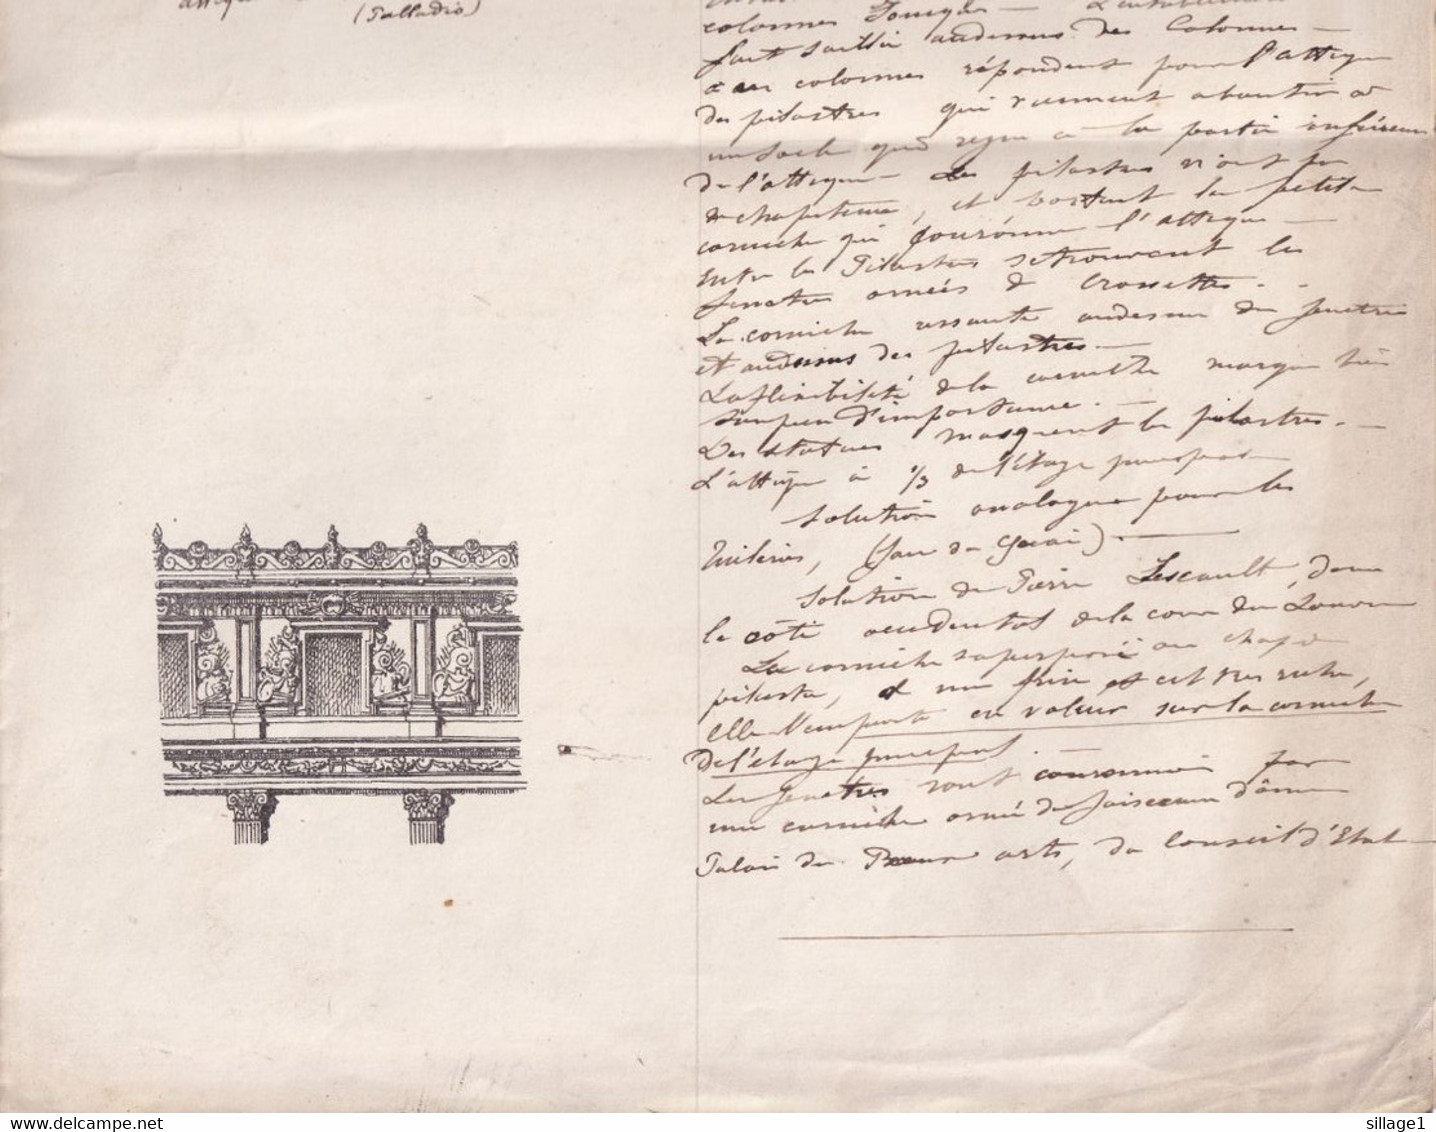 attique
(Palladio)
colonnes Ioniques — L'entablement
fait saillie au dessus des Colonnes —
à ces colonnes répondent pour l'attique
des pilastres qui viennent aboutir à
un socle qui règne à la partie inférieure
de l'attique — Les pilastres n'ont pas
de chapiteaux, et portent la petite
corniche qui couronne l'attique —
Entre les Pilastres se trouvent les
fenetres ornées de Crossettes . .
La corniche ressaute au dessus des fenetres
et au dessus des pilastres —
La flexibilité de la corniche marque bien
son peu d'importance . —
Des statues masquent les pilastres . —
L'attique a 1/3 de l'étage principal
Solution analogue pour les
Tuileries,
Solution de Pierre Lescault, dans
le côté occidental de la cour du Louvre
La corniche superposée au chap de
pilastre, et une frise et est très riche,
elle l'emporte en valeur sur la corniche
de l'étage principal . —
Les fenetres sont couronnées par
une corniche orné de
Palais des Beaux arts, du Conseil d'Etat
delcampe.net
sillage1